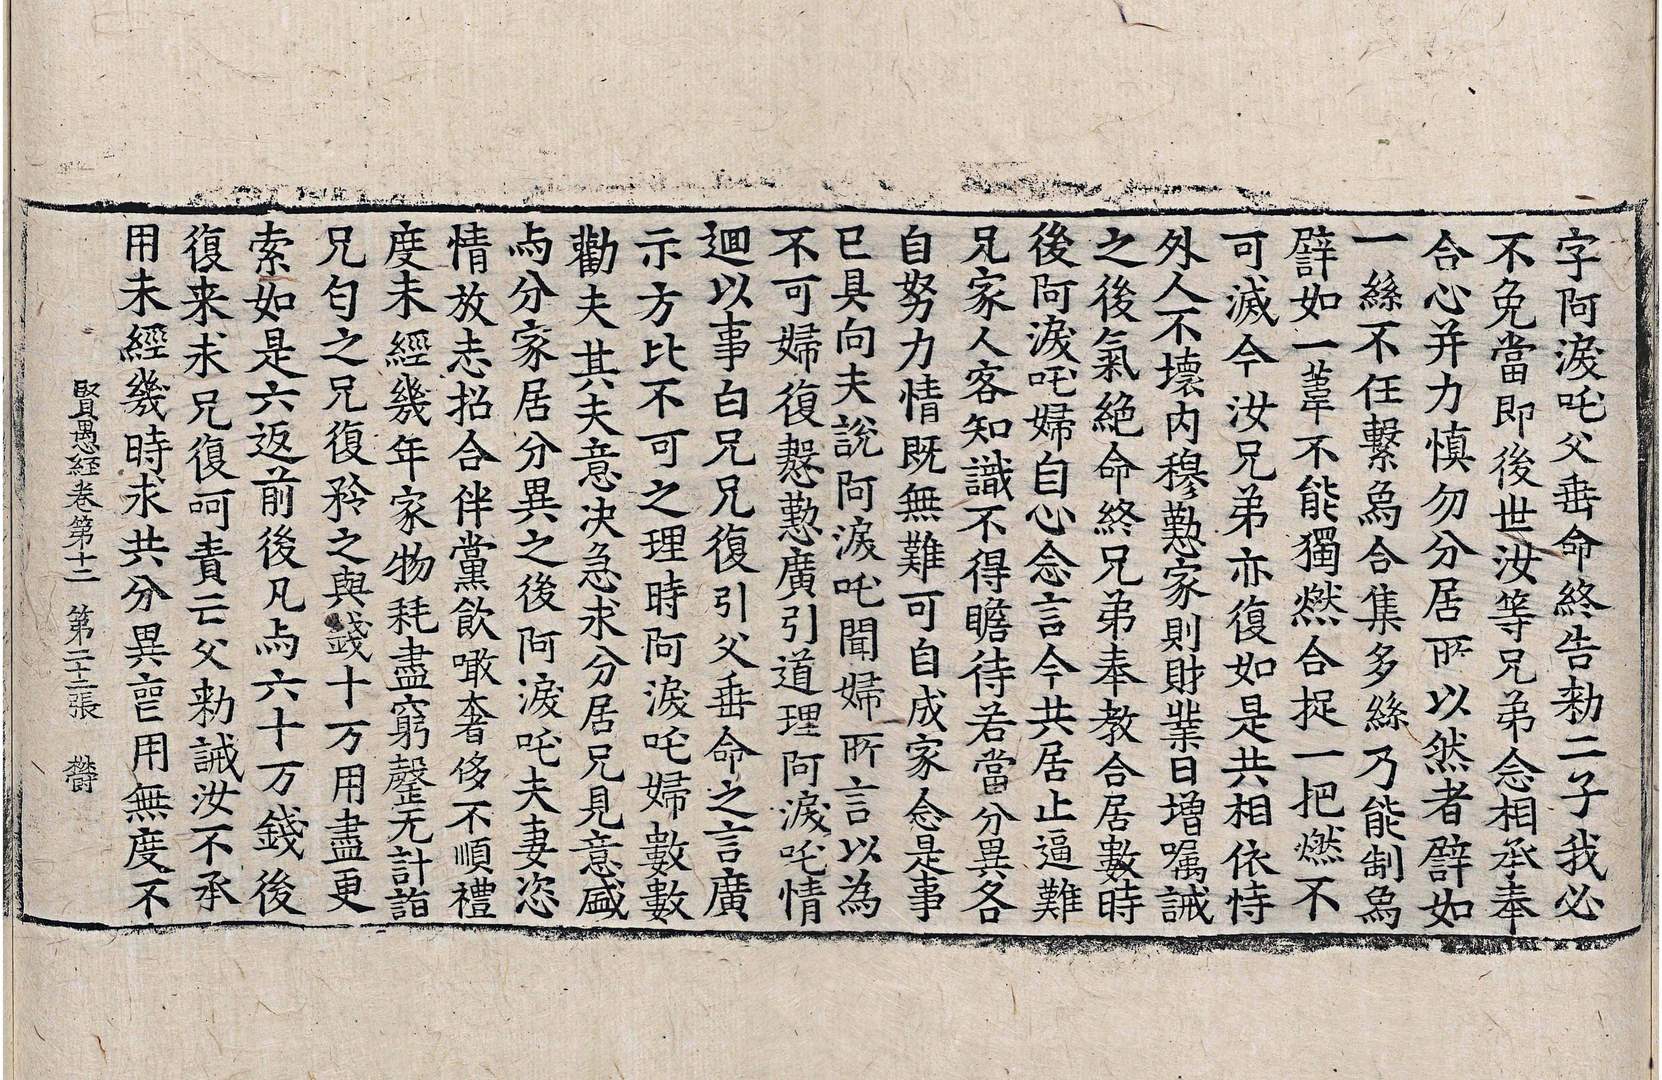 字阿淚吒父垂命終告勑二子我必
不免當即後世汝等兄弟念相承奉
合心并力慎勿分居所以然者譬如
一絲不任繫烏合集多絲乃能制烏
譬如一葦不能獨燃合捉一把燃不
可滅今汝兄弟亦復如是共相依恃
外人不壞內穆懃家則財業日增囑誡
之後氣絕命終兄弟奉教合居數時
後阿淚吒婦自心念言今共居止逼難
兄家人客知識不得瞻待若當分異各
自努力情既無難可自成家念是事
已具向夫說阿淚吒聞婦所言以為
不可婦復慇懃廣引道理阿淚吒情
迴以事白兄兄復引父垂命之言廣
示方比不可之理時阿淚吒婦數數
勸夫其夫意决急求分居兄見意盛
与分家居分異之後阿淚吒夫妻恣
情放志招合伴黨飲噉奢侈不順禮
度未經幾年家物耗盡窮罄无計詣
兄匃之兄復矜之與錢十万用盡更
索如是六返前後凡与六十万錢後
復来求兄復呵責云父勑誡汝不承
用未經幾時求共分異䜴用無度不
賢愚経卷第十二　第二十二張　欝